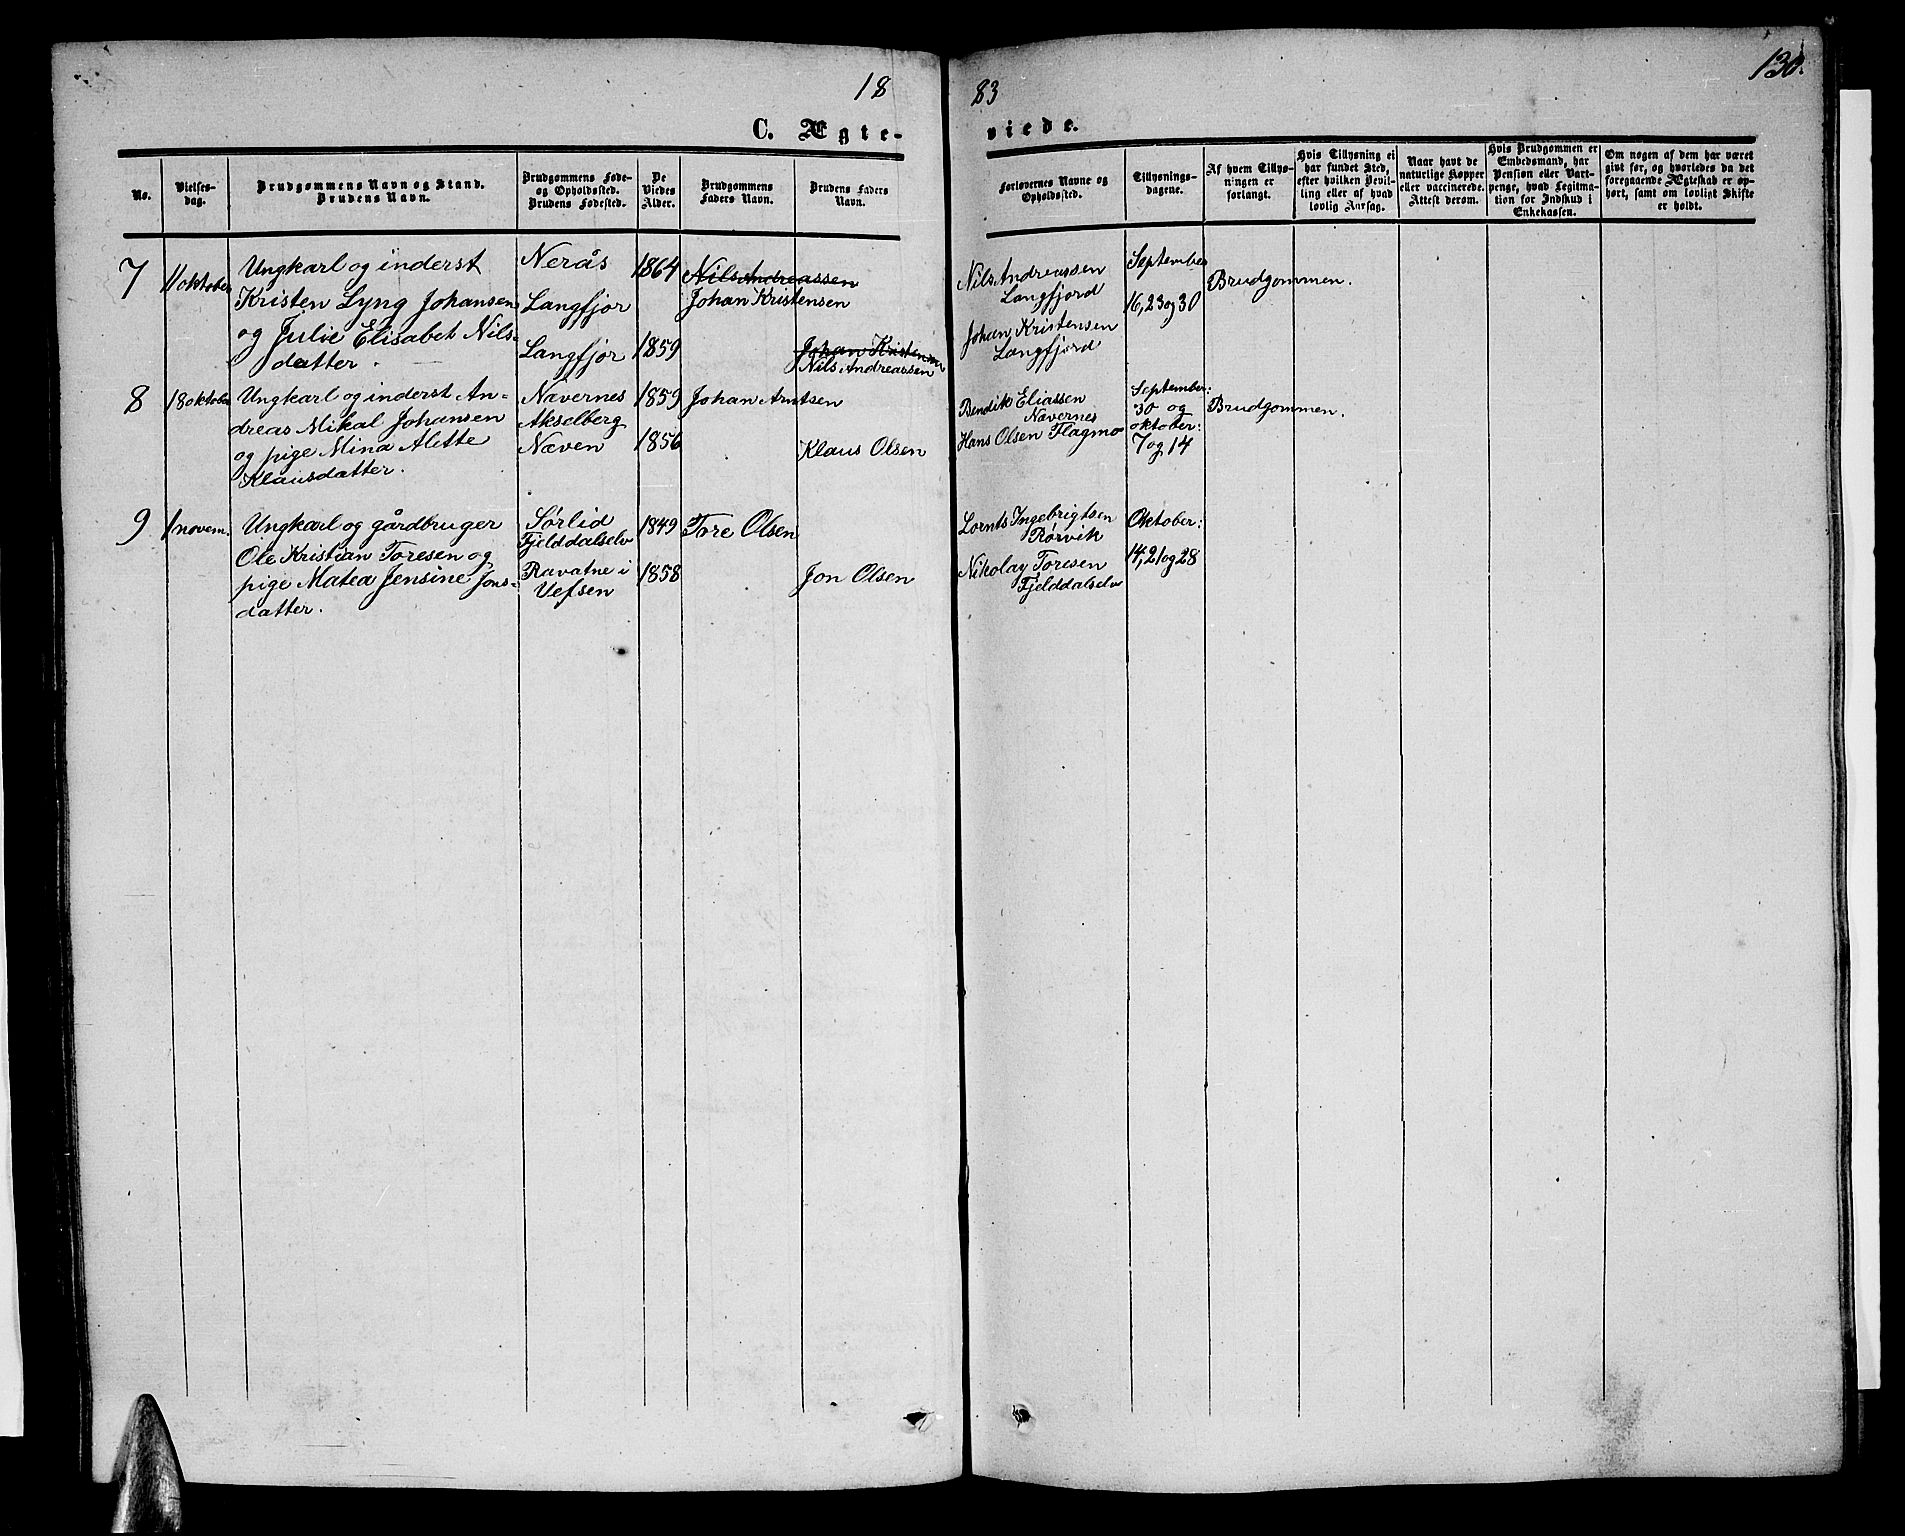 18
83
130.
C. Ægte-
viede.
No.
Vielses-
dag.
Brudgommens Navn og Stand.
Brudens Navn.
Brudgommens Føde-
og Opholdssted.
Brudens Fødested.
De
Viedes
Alder.
Brudgommens
Faders Navn.
Brudens Faders
Navn.
Forlovernes Navne og
Opholdssted.
Tillysnings-
dagene.
Af hvem Tillys-
ningen er
forlangt.
Hvis Tillysning ei
har fundet Sted,
efter hvilken Bevil-
ling eller af hvad
lovlig Aarsag.
Naar havt de
naturlige Kopper
eller vaccinerede.
Attest derom.
Hvis Brudgommen er
Embedsmand, har
Pension eller Vart-
penge, hvad Legitima-
tion for Indskud i
Enkekassen.
Om nogen af dem har været
givt før, og hvorledes da det
foregaaende Ægteskab er op-
hørt, samt om lovligt Skifte
er holdt.
7
11 oktober
Ungkarl og inderst
Kristen Lyng Johansen
og Julie Elisabet Nils-
datter.
Nerås
Langfjor
Langfjor
1864
1859
Nils Andreassen
Johan Kristensen
Johan Kristensen
Nils Andreassen
Nils Andreassen
Langfjord
Johan Kristensen
Langfjord
September
16, 23 og 30
Brudgommen.
8
18 oktober
Ungkarl og inderst An-
dreas Mikal Johansen
og pige Mina Alette
Klausdatter.
Nævernes
Akselberg
Næven
1859
1856
Johan Arntsen
Klaus Olsen
Bendik Eliassen
Nævernes
Hans Olsen Flagmo
September:
30 og
oktober:
7 og 14
Brudgommen.
9
1 novem.
Ungkarl og gårdbruger
Ole Kristian Toresen og
pige Matea Jensine Jons-
datter.
Sørlid
Fjelddalselv
Ravatne i
Vefsen
1849
1858
Tore Olsen
Jon Olsen
Lornts Ingebrigtsen
Rørvik
Nikolay Toresen
Fjelddalselv
Oktober:
14, 21 og 28